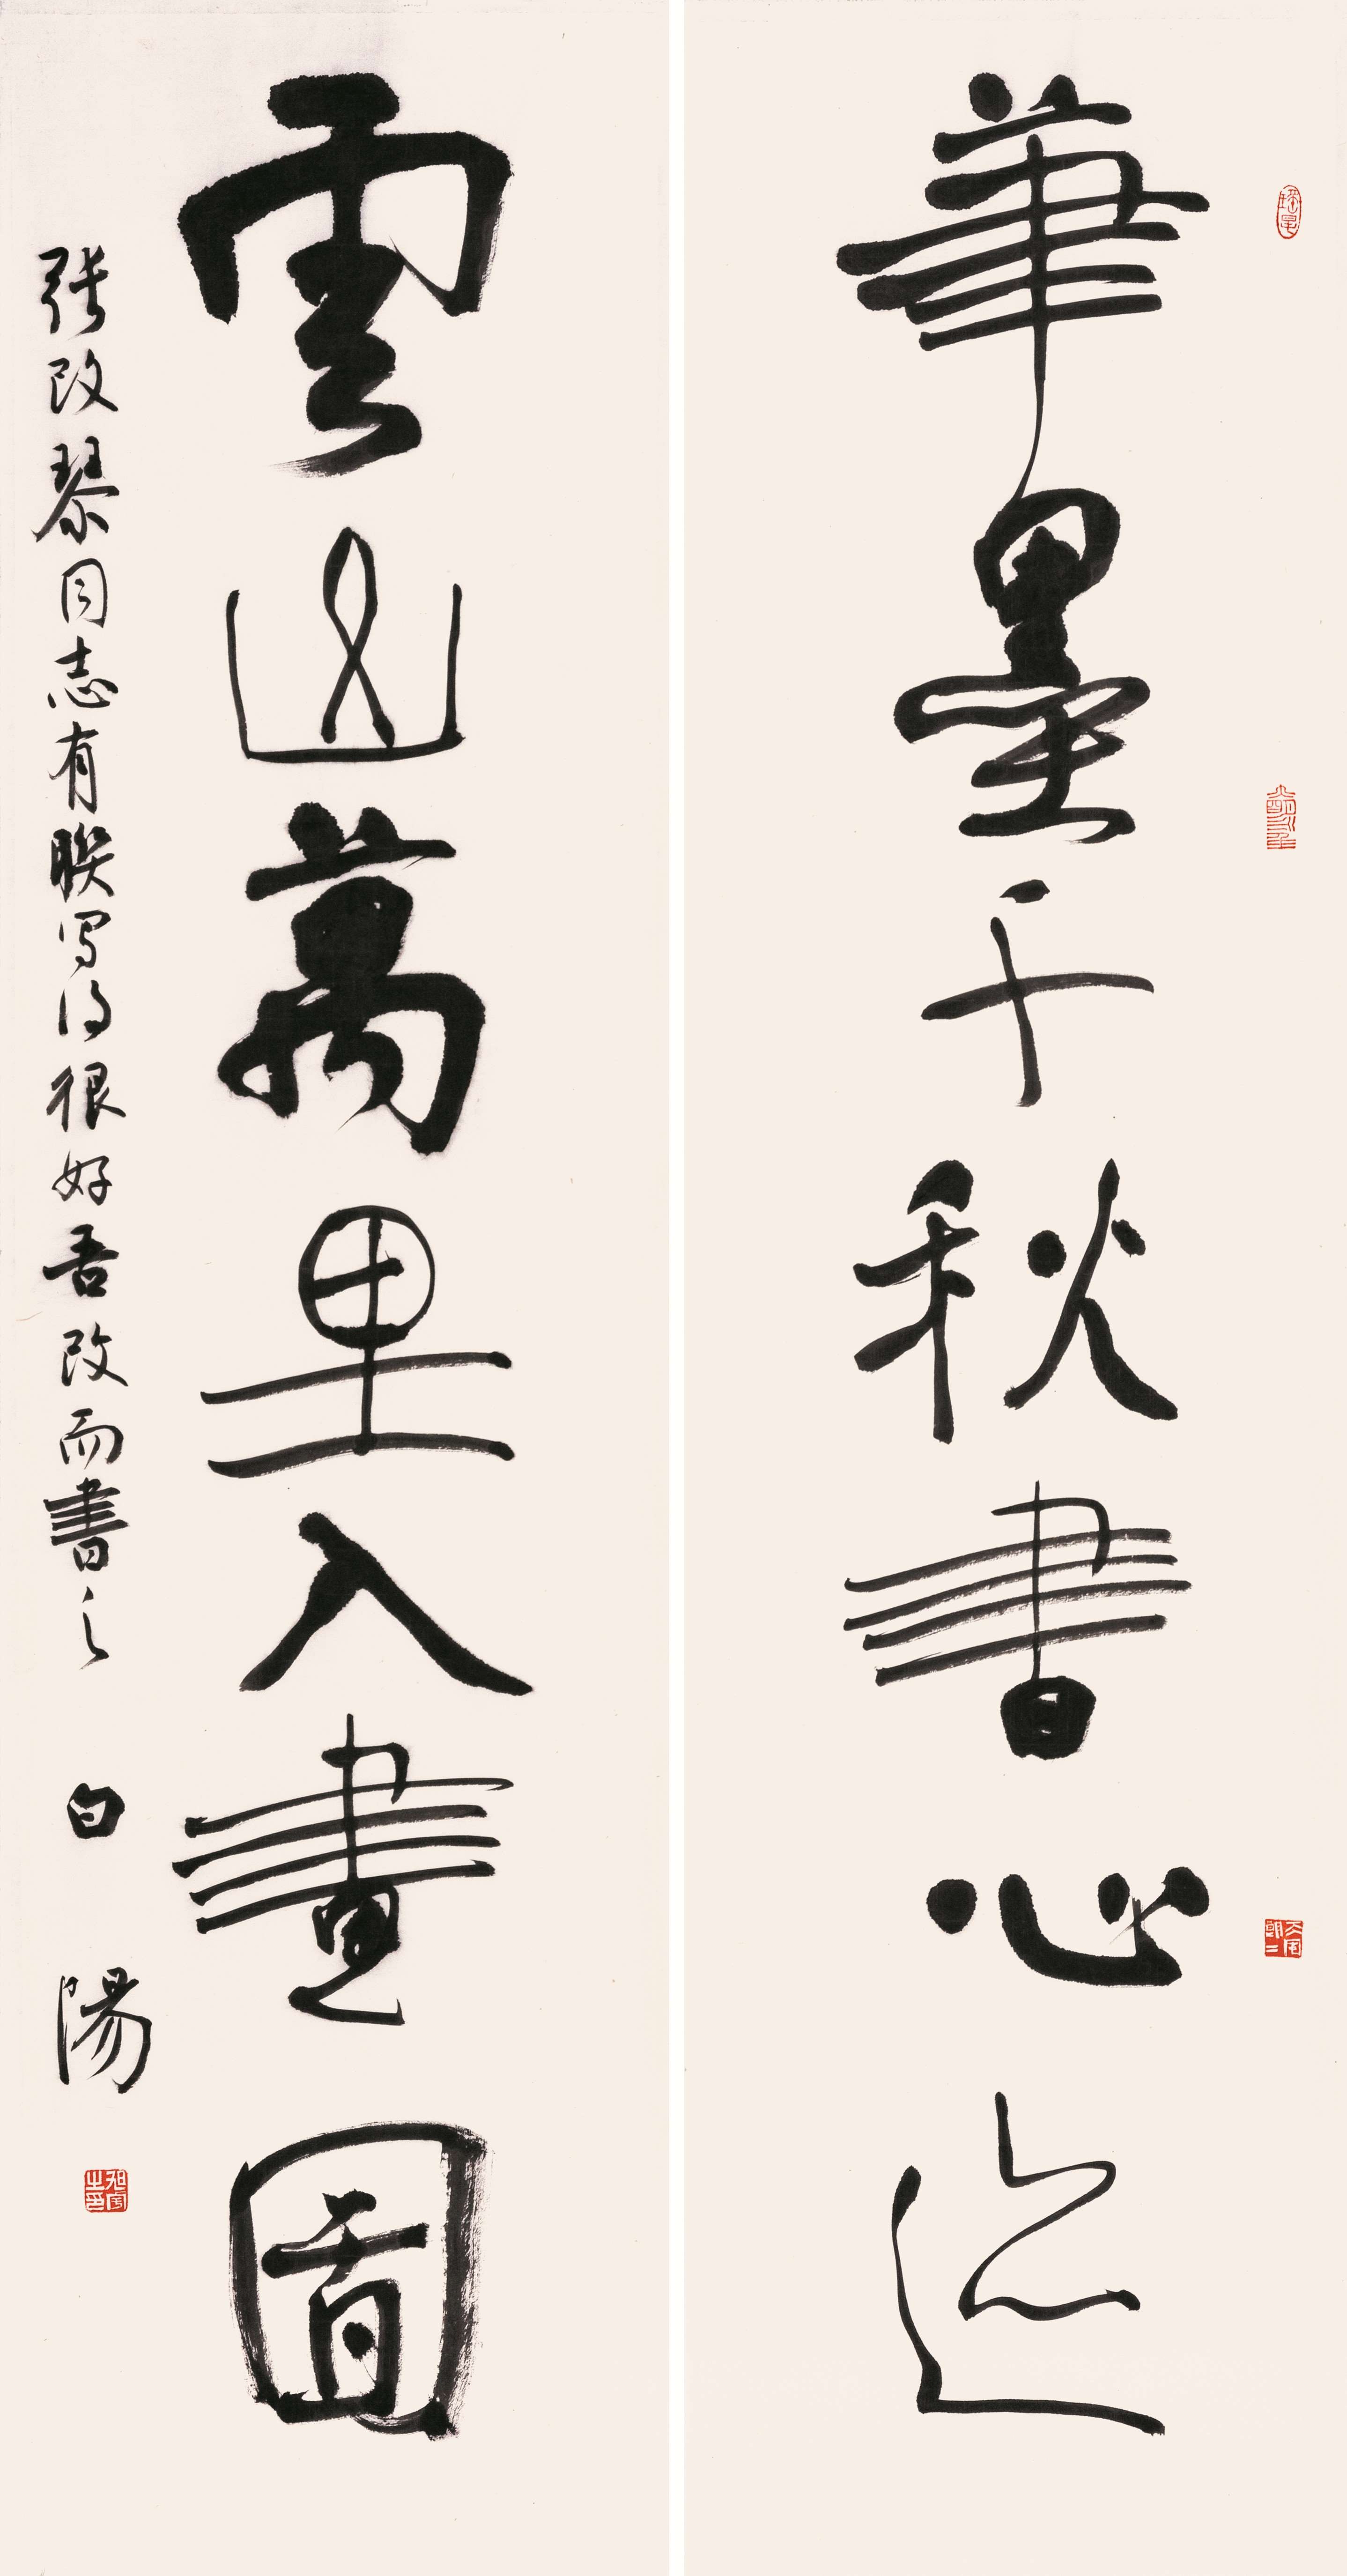 筆墨千秋書心迹
雲山萬里入畫圖
張改琴同志有联写得很好吾改而書之 白陽
旭宇之印